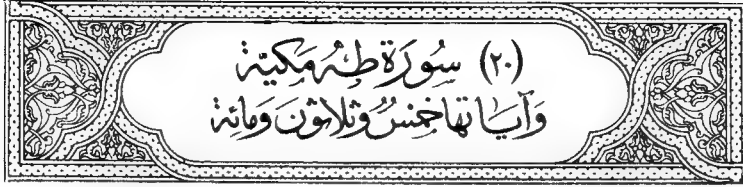 (٢٠) سُورَة طه مَكيّة
وَآيَاتها خمسٌ وثلاثون ومائة